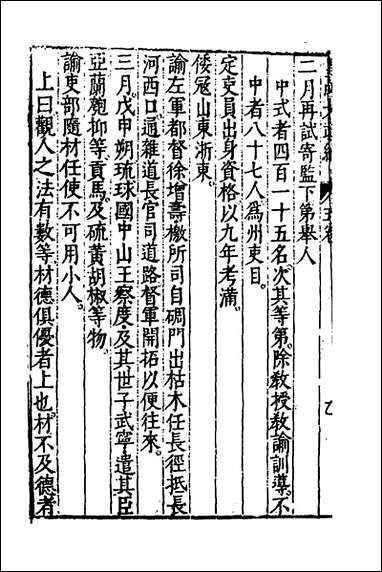 二月再試寄監下第舉人
中式者四百一十五名次其等第除敎授敎諭訓導不
中者八十七人爲州吏目
定吏員出身資格以九年考滿
倭寇山東浙東
諭左軍都督徐增壽檄所司自碉門出枯木任長徑抵長
河西口通雜道長官司道路督軍開拓以便往來
三月戊甲朔琉球國中山王察度及其世子武寧遣其臣
亞蘭匏抑等貢馬及硫黃胡椒等物
諭吏部隨材任使不可用小人
上曰觀人之法有數等材德俱優者上也材不及德者